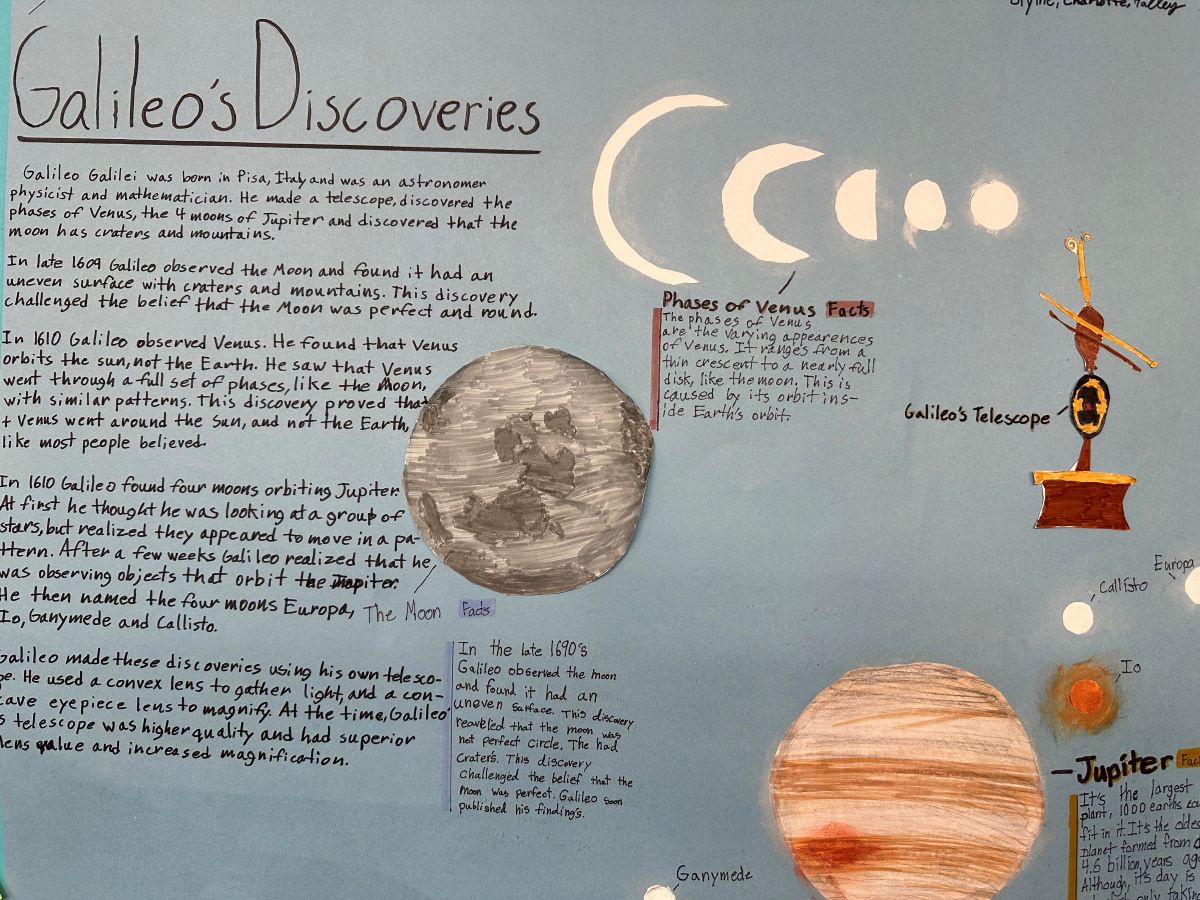 Galileo's Discoveries
Galileo Galilei was born in Pisa, Italy and was an astronomer
physicist and mathematician. He made a telescope, discovered the
phases of Venus, the 4 moons of Jupiter and discovered that the
moon has craters and mountains.
In late 1609 Galileo observed the Moon and found it had an
uneven surface with craters and mountains. This discovery
challenged the belief that the Moon was perfect and round.
In 1610 Galileo observed Venus. He found that Venus
orbits the sun, not the Earth. He saw that Venus
went through a full set of phases, like the Moon,
with similar patterns. This discovery proved that
+ Venus went around the Sun, and not the Earth,
like most people believed.
In 1610 Galileo found four moons orbiting Jupiter.
At first he thought he was looking at a group of
stars, but realized they appeared to move in a pa-
ttern. After a few weeks Galileo realized that he
was observing objects that orbit the Jupiter.
He then named the four moons Europa,
Io, Ganymede and Callisto.
Galileo made these discoveries using his own telesco-
pe. He used a convex lens to gather light, and a con-
cave eyepiece lens to magnify. At the time, Galileo'
s telescope was higher quality and had superior
lens value and increased magnification.
The Moon Facts
In the late 1690's
Galileo observed the moon
and found it had an
uneven surface. This discovery
reaveled that the moon was
not perfect circle. The had
craters. This discovery
challenged the belief that the
moon was perfect. Galileo soon
published his finding's.
Charlotte, Talley
Phases of Venus Facts
The phases of Venus
are the varying appearences
of Venus. It ranges from a
thin crescent to a nearly full
disk, like the moon. This is
caused by its orbit ins-
ide Earth's orbit.
Galileo's Telescope
Callisto
Europa
Io
Ganymede
Jupiter
It's the largest
plant, 1000 earths
fit in it. It's the
Planet formed from
4.6 billion years
Although, it's day is
only